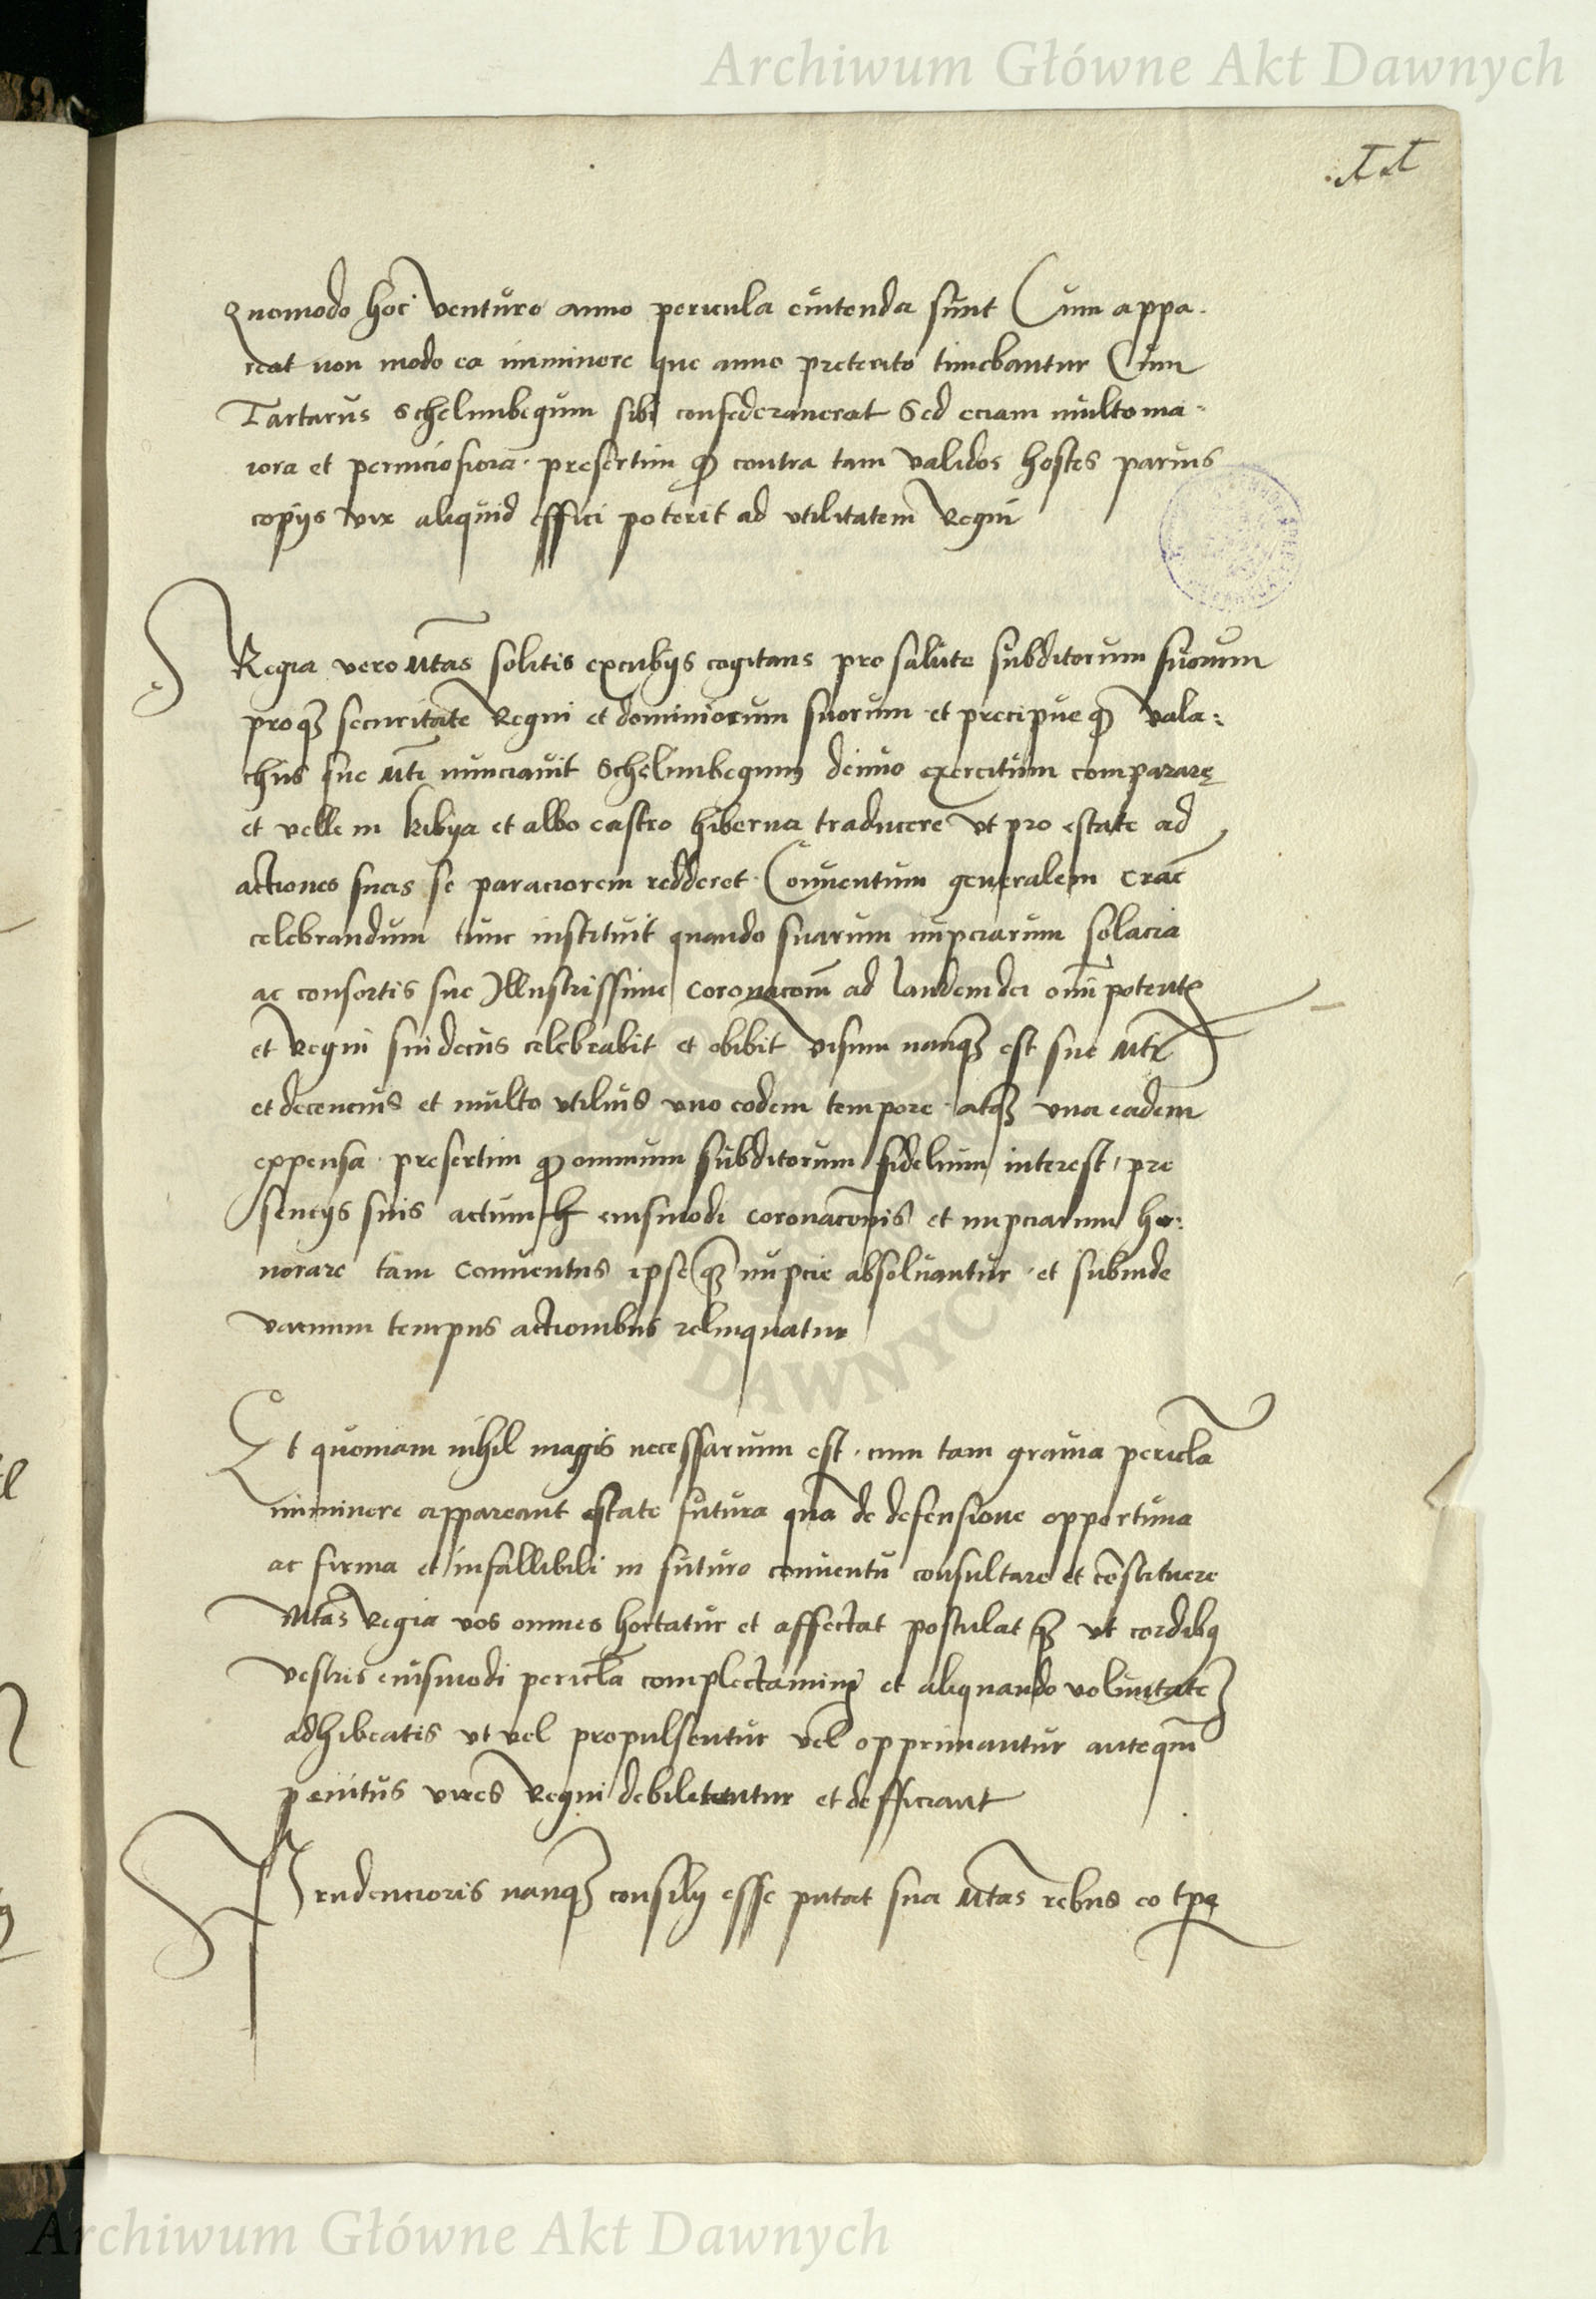 Archiwum Główne Akt Dawnych
Quomodo hoc venturo anno pericula euitenda sunt Cum appa-
reat non modo ea imminere que anno preterito timebantur Cum
Tartarus Schelimbegum sibi confederauerat Sed eciam multo ma-
iora et perniciosiora presertim q contra tam validos hostes paruis
copijs vix aliquid effici poterit ad vtilitatem Regni
Regia vero Mtas solitis excubijs cogitans pro salute subditorum suorum
proq securitate Regni et dominiorum suorum et precipue q Vala-
chus sue Mti nunciauit Schelimbegum denuo exercitum comparare
et velle in kiliya et albo castro hiberna traducere vt pro estate ad
actiones suas se paraciorem redderet Conuentum generalem Crac
celebrandum tunc instituit quando suarum nupciarum solacia
ac consortis sue Illustrissime coronacom ad laudem dei omipotentis
et Regni sui decus celebrabit et obibit Visum nanq est sue Mti
et decencius et multo vtilius vno eodem tempore atq vna eadem
expensa presertim q omnium subditorum fidelium interest pre
sencijs suis actum ejusmodi coronaconis et nupciarum ho-
norare tam conuentus ipse q nupcie absoluantur et subinde
vacuum tempus actionibus relinquatur
Et quoniam nihil magis necessarium est cum tam grauia pericla
imminere appareant estate futura qua de defensione opportuna
ac firma et infallibili in futuro conuentu consultare et constituere
Mtas Regia vos omnes hortatur et affectat postulat q vt cordibq
vestris eiusmodi pericla complectamini et aliquando voluntate
adhibeatis vt vel propulsentur vel opprimantur anteqm
penitus vires Regni debilitentur et defficiant
Prudencioris nanq consilij esse putat sua Mtas rebus eo tpe
DAWNYCH
Archiwum Główne Akt Dawnych